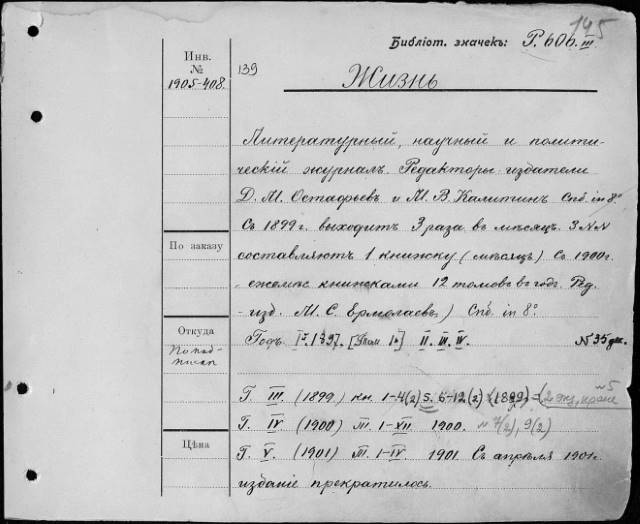 145
Библіот. значекъ: Р. 606. III
Инв.
№
1905-408.
139
Жизнь
Литературный, научный и полити-
ческій журналъ. Редакторы-издатели
Д. М. Остафьевъ и М. В. Калитинъ Спб. in 8°
Съ 1899 г. выходитъ 3 раза въ мѣсяцъ. 3 №№
составляютъ 1 книжку (мѣсяцъ) Съ 1900 г.
ежемѣс. книжками 12 томовъ въ годъ. Ред.
изд. М. С. Ермолаевъ) Спб. in 8°
По заказу
Откуда
Годъ I 1897. [Томъ I] II. III. IV. № 35
Г. III. (1899) кн. 1-4(2) 5. 6-12(2) (1899) (2 экз, кроме №5
Г. IV (1900) т. I-XII. 1900. 9(2)
Цѣна
Г. V. (1901) т. I-IV. 1901. Съ апрѣля 1901 г.
изданіе прекратилось.